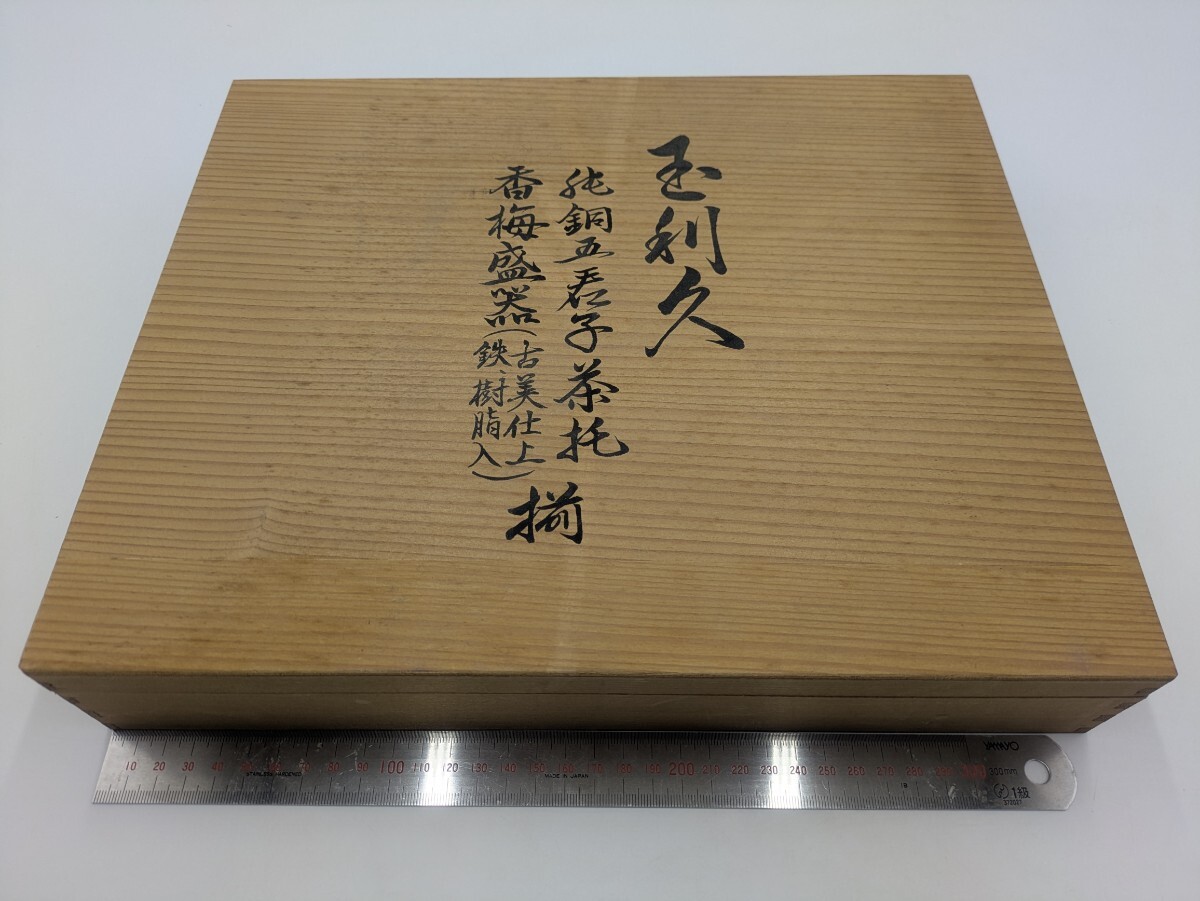 玉利久
純銅五君子茶托
香梅盛器(古美仕上
鉄、樹脂入)
揃
10 20 30 40 70 80 90 100 110 120 130 140 150 170 80 90 200 210 220 230 240 250 260 270 280 290 300mm
STAINLESS HARDENED
MADE IN JAPAN
1級